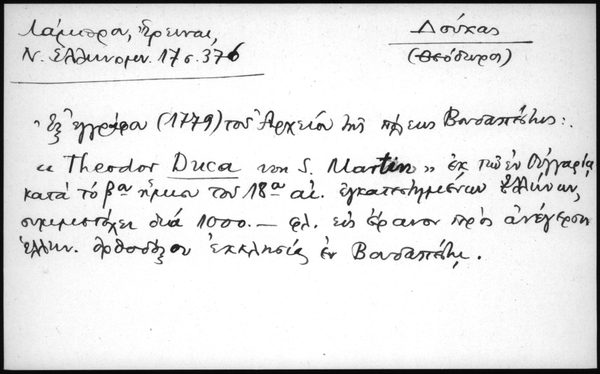 Λάμπρου, Ἔρευναι,
Ν. Ἑλληνομν. 17 σ. 376
Δούκας
(Θεόδωρος)
Ἐξ ἐγγράφου (1779) τοῦ Ἀρχείου τῆς πόλεως Βουδαπέστης:
„ Theodor Duca von S. Martin " ἐκ τῶν ἐν Οὐγγαρίᾳ
κατὰ τὸ βον ἥμισυ τοῦ 18ου αἰ. ἐγκατεστημένων Ἑλλήνων,
συμμετέχει διὰ 1000.— φλ. εἰς ἔρανον πρὸς ἀνέγερσιν
ἑλλην. ὀρθοδόξου ἐκκλησίας ἐν Βουδαπέστῃ.